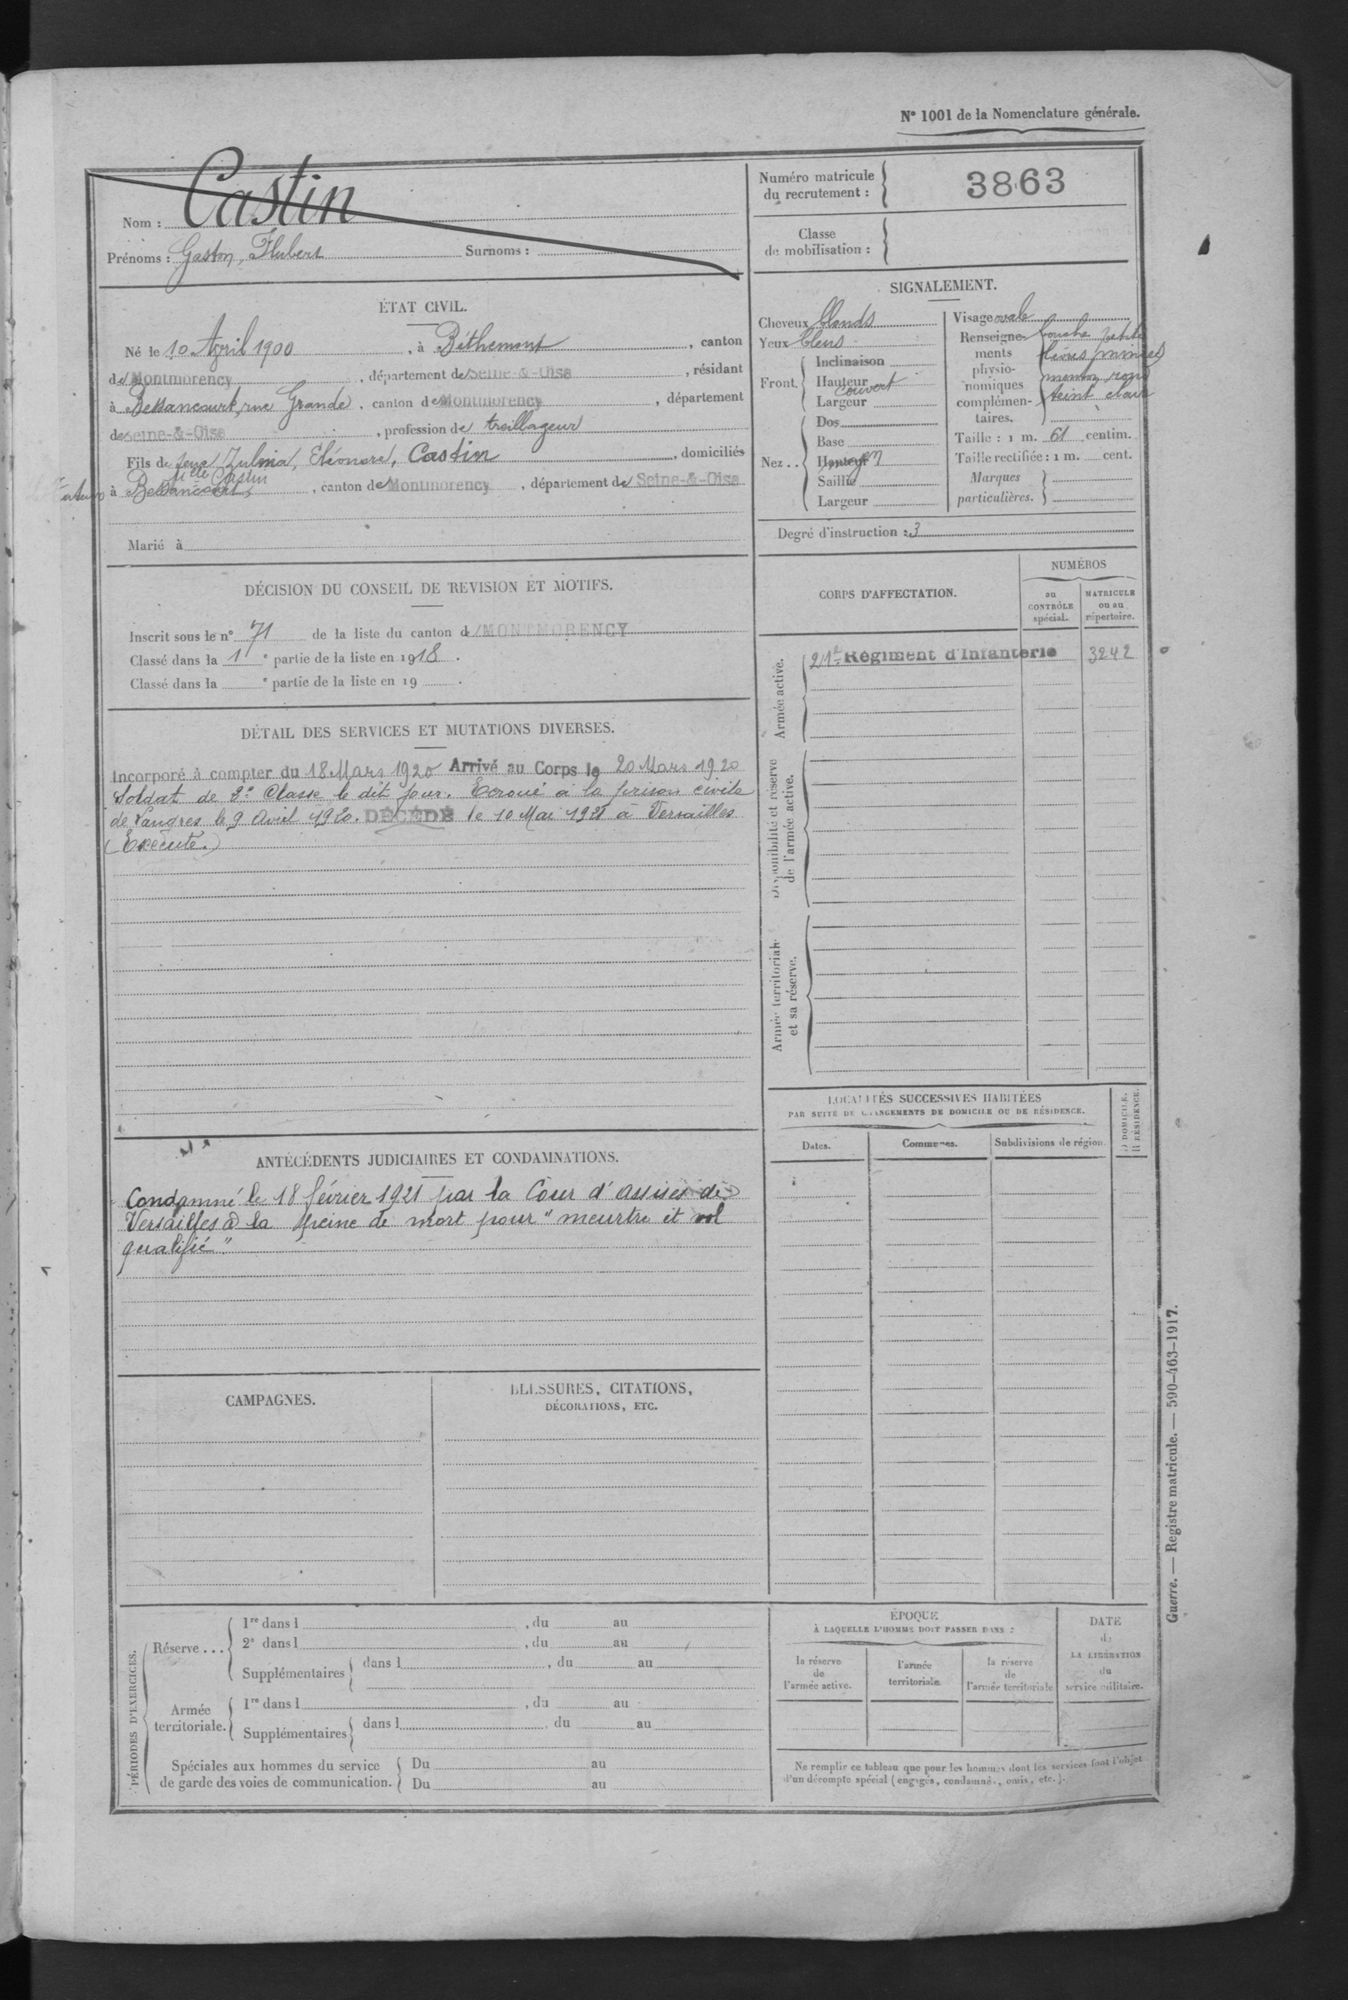 N° 1001 de la Nomenclature générale.
Nom : Castin
Prénoms : Gaston, Hubert Surnoms :
Numéro matricule du recrutement : 3863
Classe de mobilisation :
ÉTAT CIVIL.
Né le 10 Avril 1900, à Béthemont, canton
de Montmorency, département de Seine-&-Oise, résidant
à Bessancourt, rue Grande, canton de Montmorency, département
de Seine-&-Oise, profession de treillageur
Fils de feue Zulma, Eléonore, Castin, domiciliés
à Bessancourt, canton de Montmorency, département de Seine-&-Oise
Marié à
SIGNALEMENT.
Cheveux blonds
Yeux bleus
Front. Inclinaison
Hauteur
couvert
Largeur
Nez.. Dos
Base
Hauteur
moyen
Saillie
Largeur
Visage ovale
Renseignements physionomiques complémentaires. bouche petite
menton rond
teint clair
Taille : 1 m. 61 centim.
Taille rectifiée : 1 m. cent.
Marques particulières.
Degré d'instruction : 3
DÉCISION DU CONSEIL DE REVISION ET MOTIFS.
Inscrit sous le n° 71 de la liste du canton de MONTMORENCY
Classé dans la 1e partie de la liste en 1918.
Classé dans la e partie de la liste en 19 .
CORPS D'AFFECTATION.
NUMÉROS
au CONTRÔLE spécial.
MATRICULE ou au répertoire.
Armée active.
21e Régiment d'Infanterie 3242
Disponibilité et réserve de l'armée active.
Armée territoriale et sa réserve.
DÉTAIL DES SERVICES ET MUTATIONS DIVERSES.
Incorporé à compter du 18 Mars 1920 Arrivé au Corps le 20 Mars 1920
Soldat de 2e Classe le dit jour. Ecroué à la prison civile
de Langres le 9 Avril 1920. DÉCÉDÉ le 10 Mai 1921 à Versailles
(Exécuté.)
LOCALITÉS SUCCESSIVES HABITÉES
PAR SUITE DE CHANGEMENTS DE DOMICILE OU DE RÉSIDENCE.
Dates.
Communes.
Subdivisions de région.
D DOMICILE.
R RÉSIDENCE.
ANTÉCÉDENTS JUDICIAIRES ET CONDAMNATIONS.
Condamné le 18 février 1921 par la Cour d'assises de
Versailles à la peine de mort pour "meurtre et vol
qualifié".
CAMPAGNES.
BLESSURES, CITATIONS,
DÉCORATIONS, ETC.
PÉRIODES D'EXERCICES.
Réserve...
1re dans l , du au
2e dans l , du au
Supplémentaires dans l , du au
Armée territoriale.
1re dans l , du au
Supplémentaires dans l , du au
Spéciales aux hommes du service de garde des voies de communication.
Du au
Du au
ÉPOQUE
À LAQUELLE L'HOMME DOIT PASSER DANS :
la réserve de l'armée active.
l'armée territoriale
la réserve de l'armée territoriale
DATE de LA LIBÉRATION du service militaire.
Ne remplir ce tableau que pour les hommes dont les services font l'objet
d'un décompte spécial (engagés, condamnés, omis, etc.).
Guerre. — Registre matricule. — 590-463-1917.